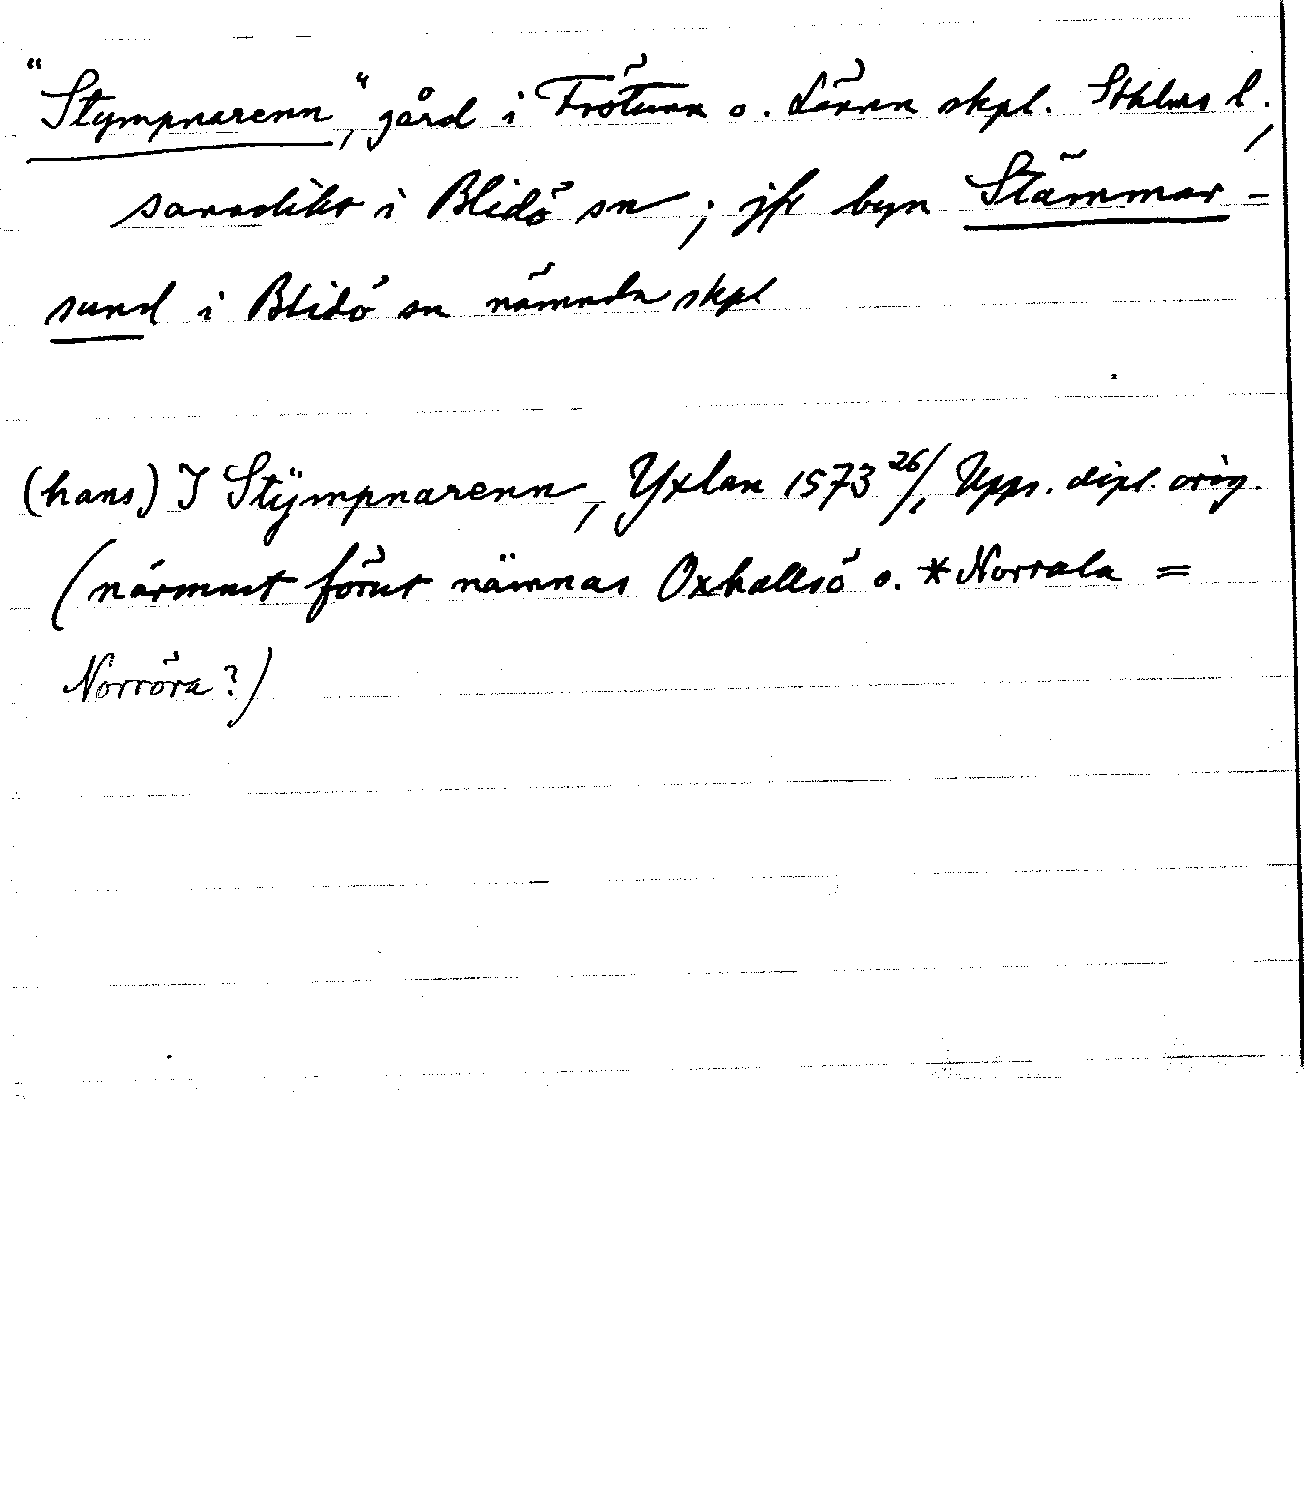 "Stympnarenn", gård i Frötuna o. Länna skpl. Sthlms l.,
sannolikt i Blidö sn; jfr byn Stämmar-
sund i Blidö sn nämnda skpl
(hans) I Stÿmpnarenn, Yxlan 1573 26/1 Upps. dipl. orig.
(närmast förut nämnas Oxhallsö o. *Norrala =
Norröra?)